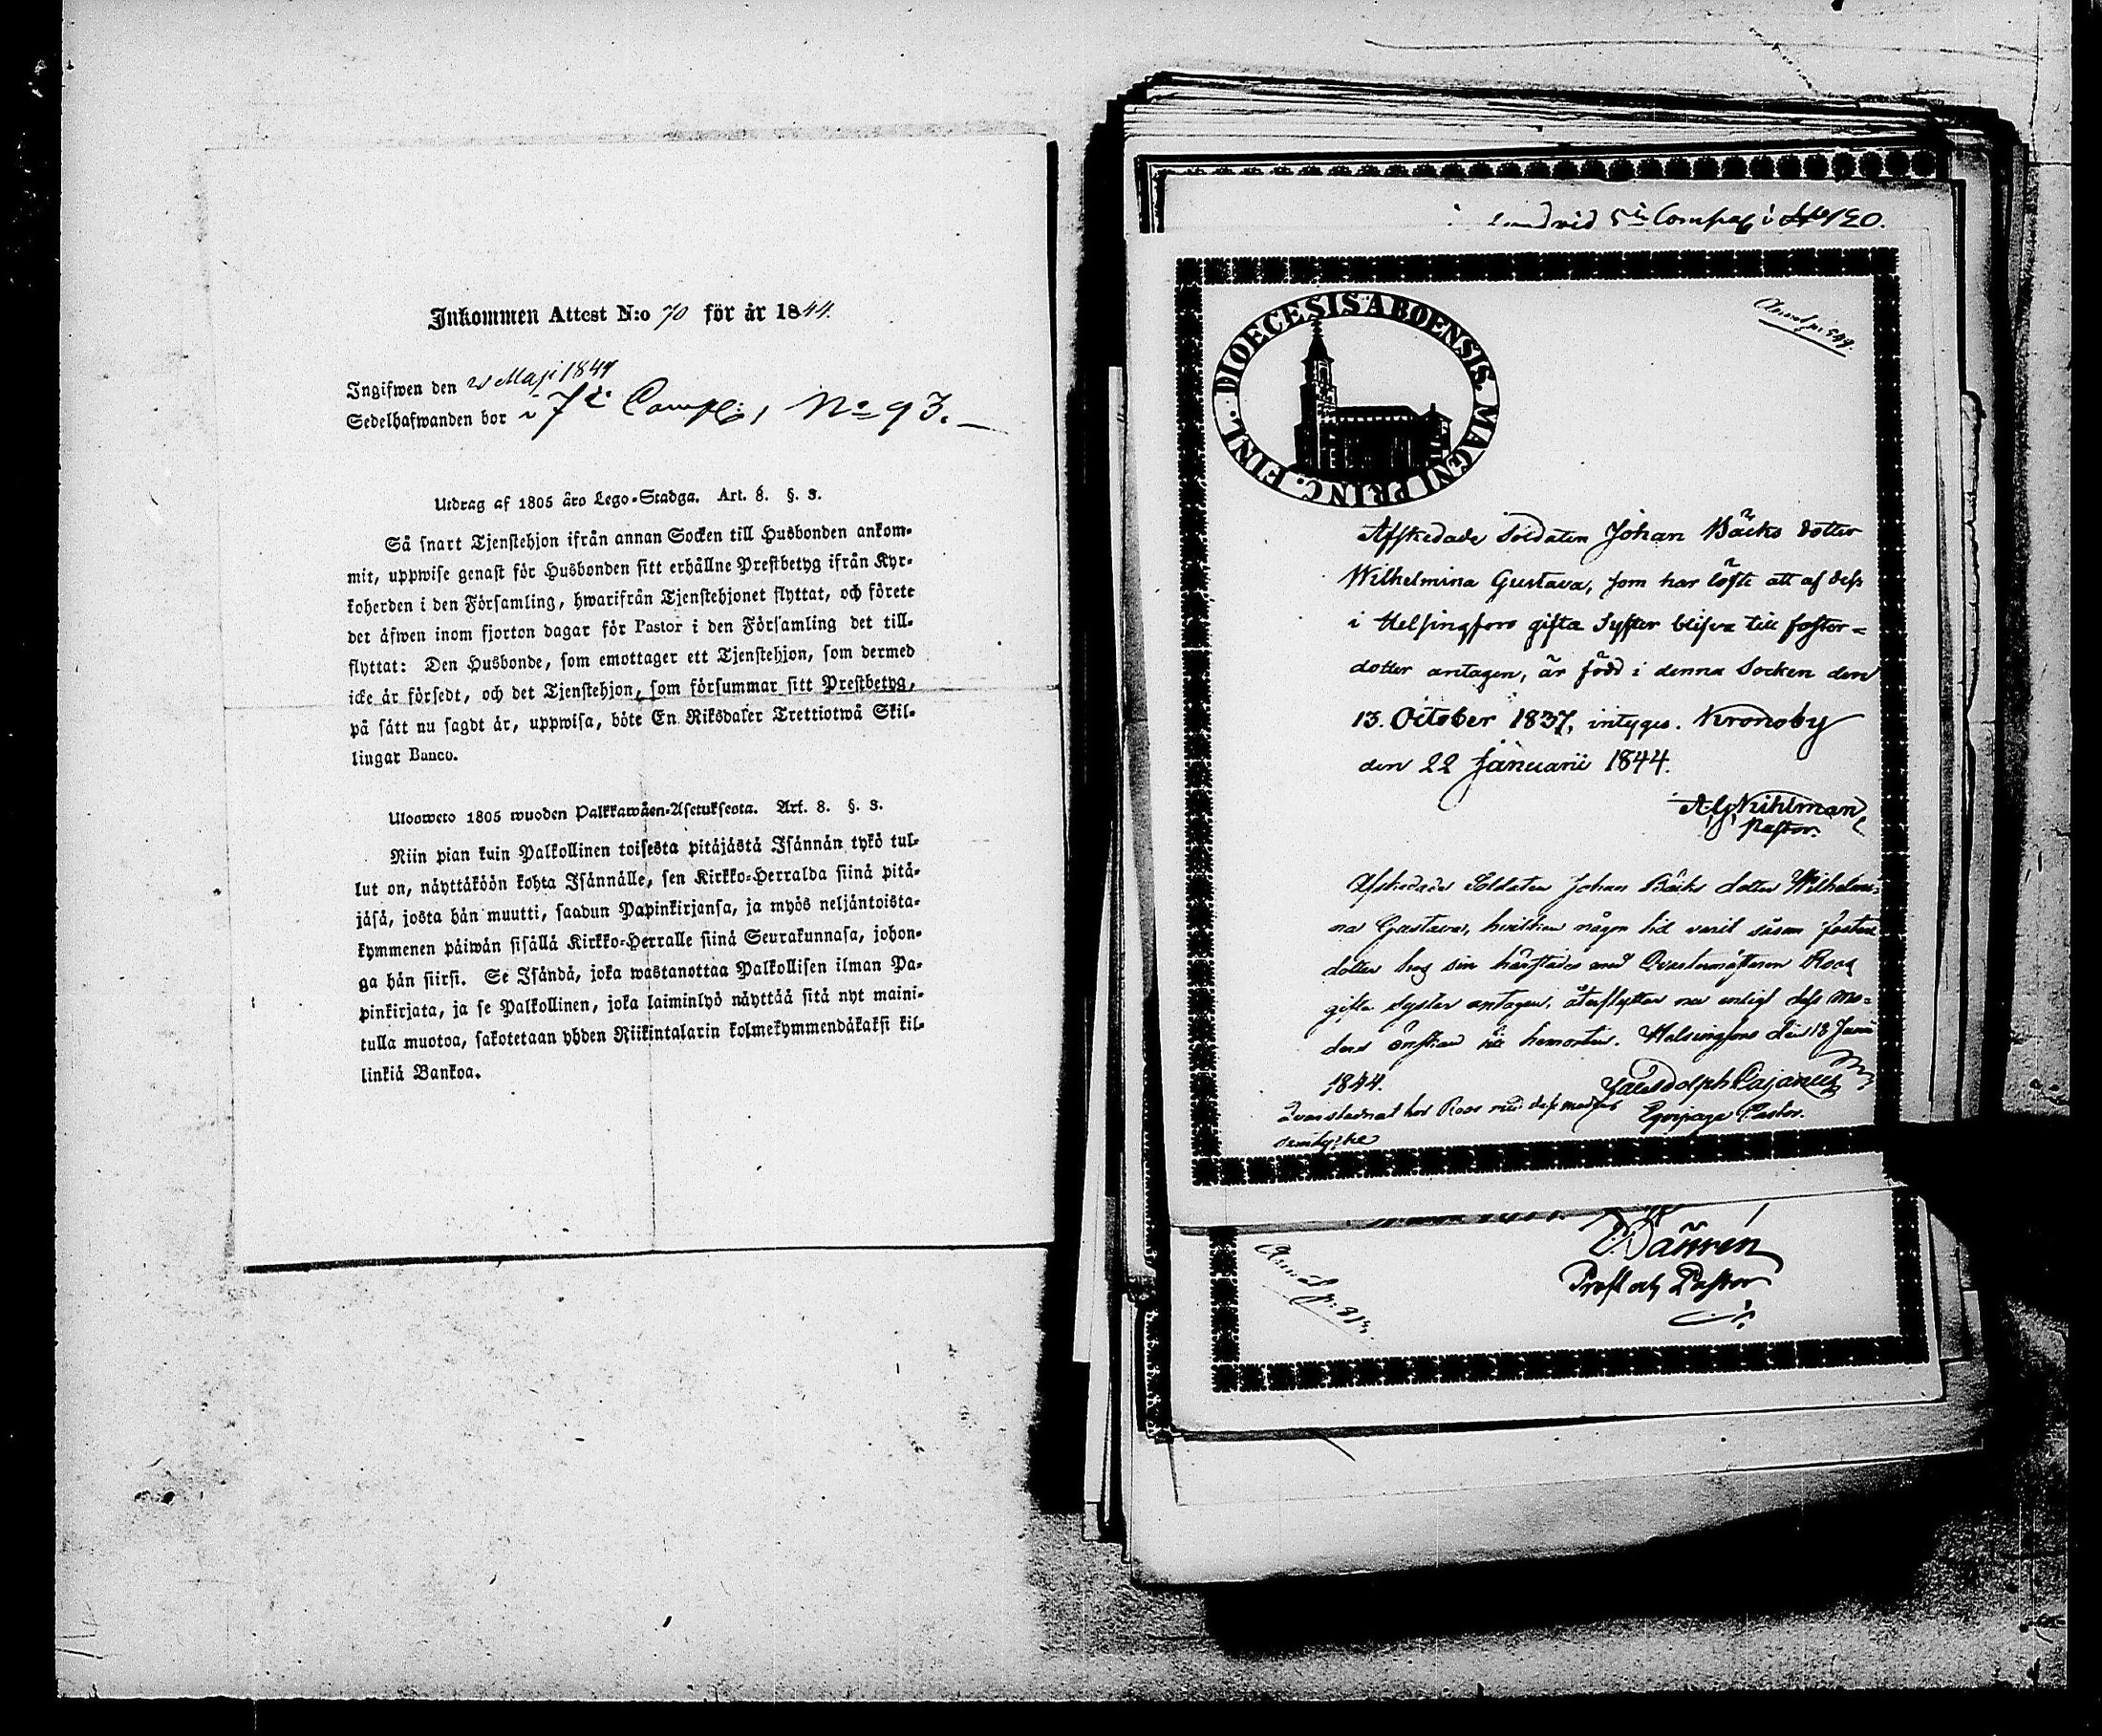 Inkommen Attest N:o 70 för år 1844.
Ingifwen den 21 Maji 1844
Sedelhafwanden bor i 7de Comp: N:o 93.
Utdrag af 1805 åro Lego-Stadga. Art. 8. §. 3.
Så snart Tjenstehjon ifrån annan Socken till Husbonden ankom-
mit, uppwise genast för Husbonden sitt erhållne Prestbetyg ifrån Kyr-
koherden i den Församling, hwarifrån Tjenstehjonet flyttat, och förete
det åfwen inom fjorton dagar för Pastor i den Församling det till-
flyttat: Den Husbonde, som emottager ett Tjenstehjon, som dermed
icke är försedt, och det Tjenstehjon, som försummar sitt Prestbetyg,
på sätt nu sagdt är, uppwisa, böte En Riksdaler Trettiotwå Skil-
lingar Banco.
Ulosweto 1805 wuoden Palkkawäen-Asetuksesta. Art. 8. §. 3.
Niin pian kuin Palkollinen toisesta pitäjästä Isännän tykö tul-
lut on, näyttäköön kohta Isännälle, sen Kirkko-Herralda siinä pitä-
jäsä, josta hän muutti, saadun Papinkirjansa, ja myös neljäntoista-
kymmenen päiwän sisällä Kirkko-Herralle siinä Seurakunnasa, johon-
ga hän siirsi. Se Isändä, joka wastanottaa Palkollisen ilman Pa-
pinkirjata, ja se Palkollinen, joka laiminlyö näyttää sitä nyt maini-
tulla muotoa, sakotetaan yhden Riikintalarin kolmekymmendäkaksi kil-
linkiä Bankoa.
vid 5te Compag i N:o 120.
DIOECESIS ABOENSIS. MAGNI PRINC. FINL.
Annot p. 549.
Afskedade Soldaten Johan Bäcks dotter
Wilhelmina Gustava, som har löfte att af dess
i Helsingfors gifta Syster blifva till foster-
dotter antagen, är född i denna Socken den
13. October 1837, intygas. Kronoby
den 22 Januarii 1844.
A. G. Kihlman
Pastor.
Afskedade Soldaten Johan Bäcks dotter Wilhelmi-
na Gustava, hvilken någon tid varit såsom foster
dotter hos sin härstädes med Qvartermästaren Roos
gifta syster antagen, återflyttar nu enligt dess Mo-
ders önskan till hemorten. Helsingfors den 13 Juni
1844.
Cajanus
Eqvipage Pastor.
hos Roos med dess
Annot p: 313.
Prost och Pastor